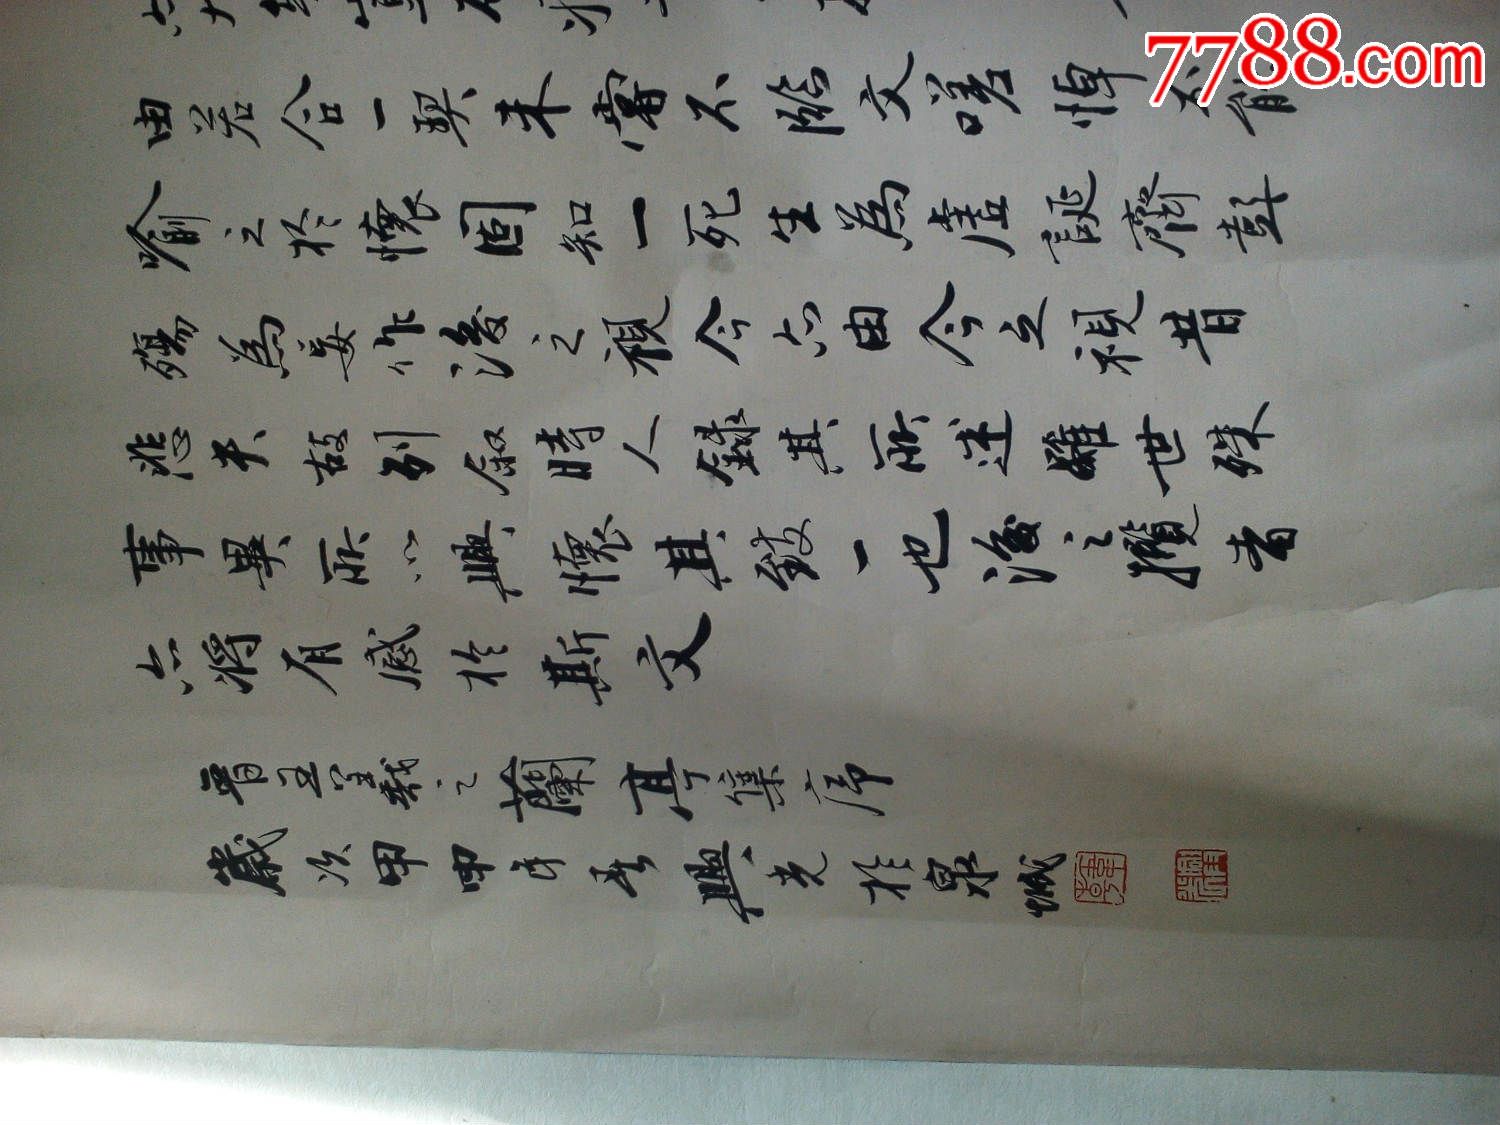 7788.com
由若合一契未嘗不臨文嗟悼不能
喻之於懷固知一死生為虛誕齊彭
殤為妄作後之視今亦由今之視昔
悲夫故列叙時人錄其所述雖世殊
事異所以興懷其致一也後之攬者
亦將有感於斯文
晉王羲之蘭亭集序
歲次甲申年春興光於泉城